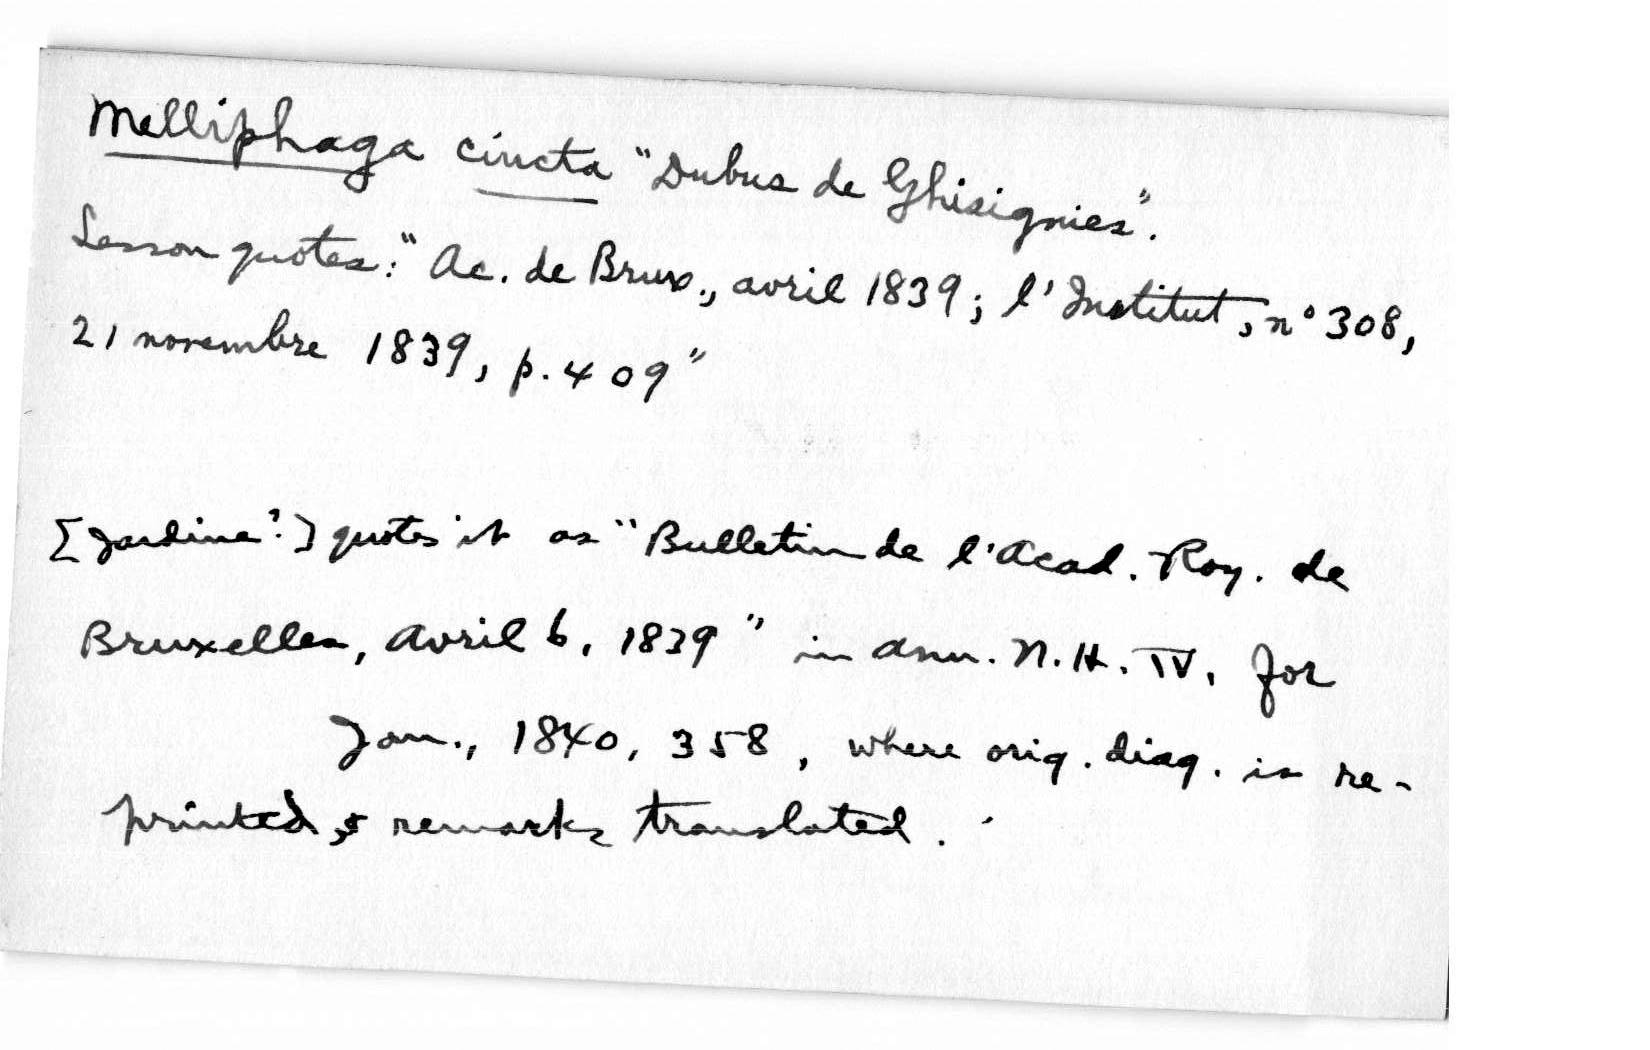 Melliphaga cincta "Dubus de Ghisignies".
Lesson quotes: "Ac. de Brux., avril 1839; l'Institut, n° 308,
21 novembre 1839, p. 409"
[Jardine?] quotes it as "Bulletin de l'Acad. Roy. de
Bruxelles, Avril 6, 1839" in Ann. N.H. IV, for
Jan., 1840, 358, where orig. diag. is re-
printed, & remarks translated.